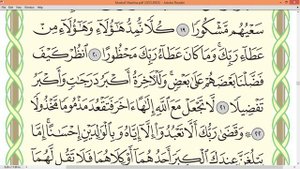 سَعْيُهُم مَّشْكُورًا ١٩ كُلًّا نُّمِدُّ هَٰٓؤُلَآءِ وَهَٰٓؤُلَآءِ مِنْ
عَطَآءِ رَبِّكَ وَمَا كَانَ عَطَآءُ رَبِّكَ مَحْظُورًا ٢٠ ٱنظُرْ كَيْفَ
فَضَّلْنَا بَعْضَهُمْ عَلَىٰ بَعْضٍ وَلَلْءَاخِرَةُ أَكْبَرُ دَرَجَٰتٍ وَأَكْبَرُ
تَفْضِيلًا ٢١ لَّا تَجْعَلْ مَعَ ٱللَّهِ إِلَٰهًا ءَاخَرَ فَتَقْعُدَ مَذْمُومًا مَّخْذُولًا
٢٢ وَقَضَىٰ رَبُّكَ أَلَّا تَعْبُدُوٓا۟ إِلَّآ إِيَّاهُ وَبِٱلْوَٰلِدَيْنِ إِحْسَٰنًا إِمَّا
يَبْلُغَنَّ عِندَكَ ٱلْكِبَرَ أَحَدُهُمَآ أَوْ كِلَاهُمَا فَلَا تَقُل لَّهُمَآ